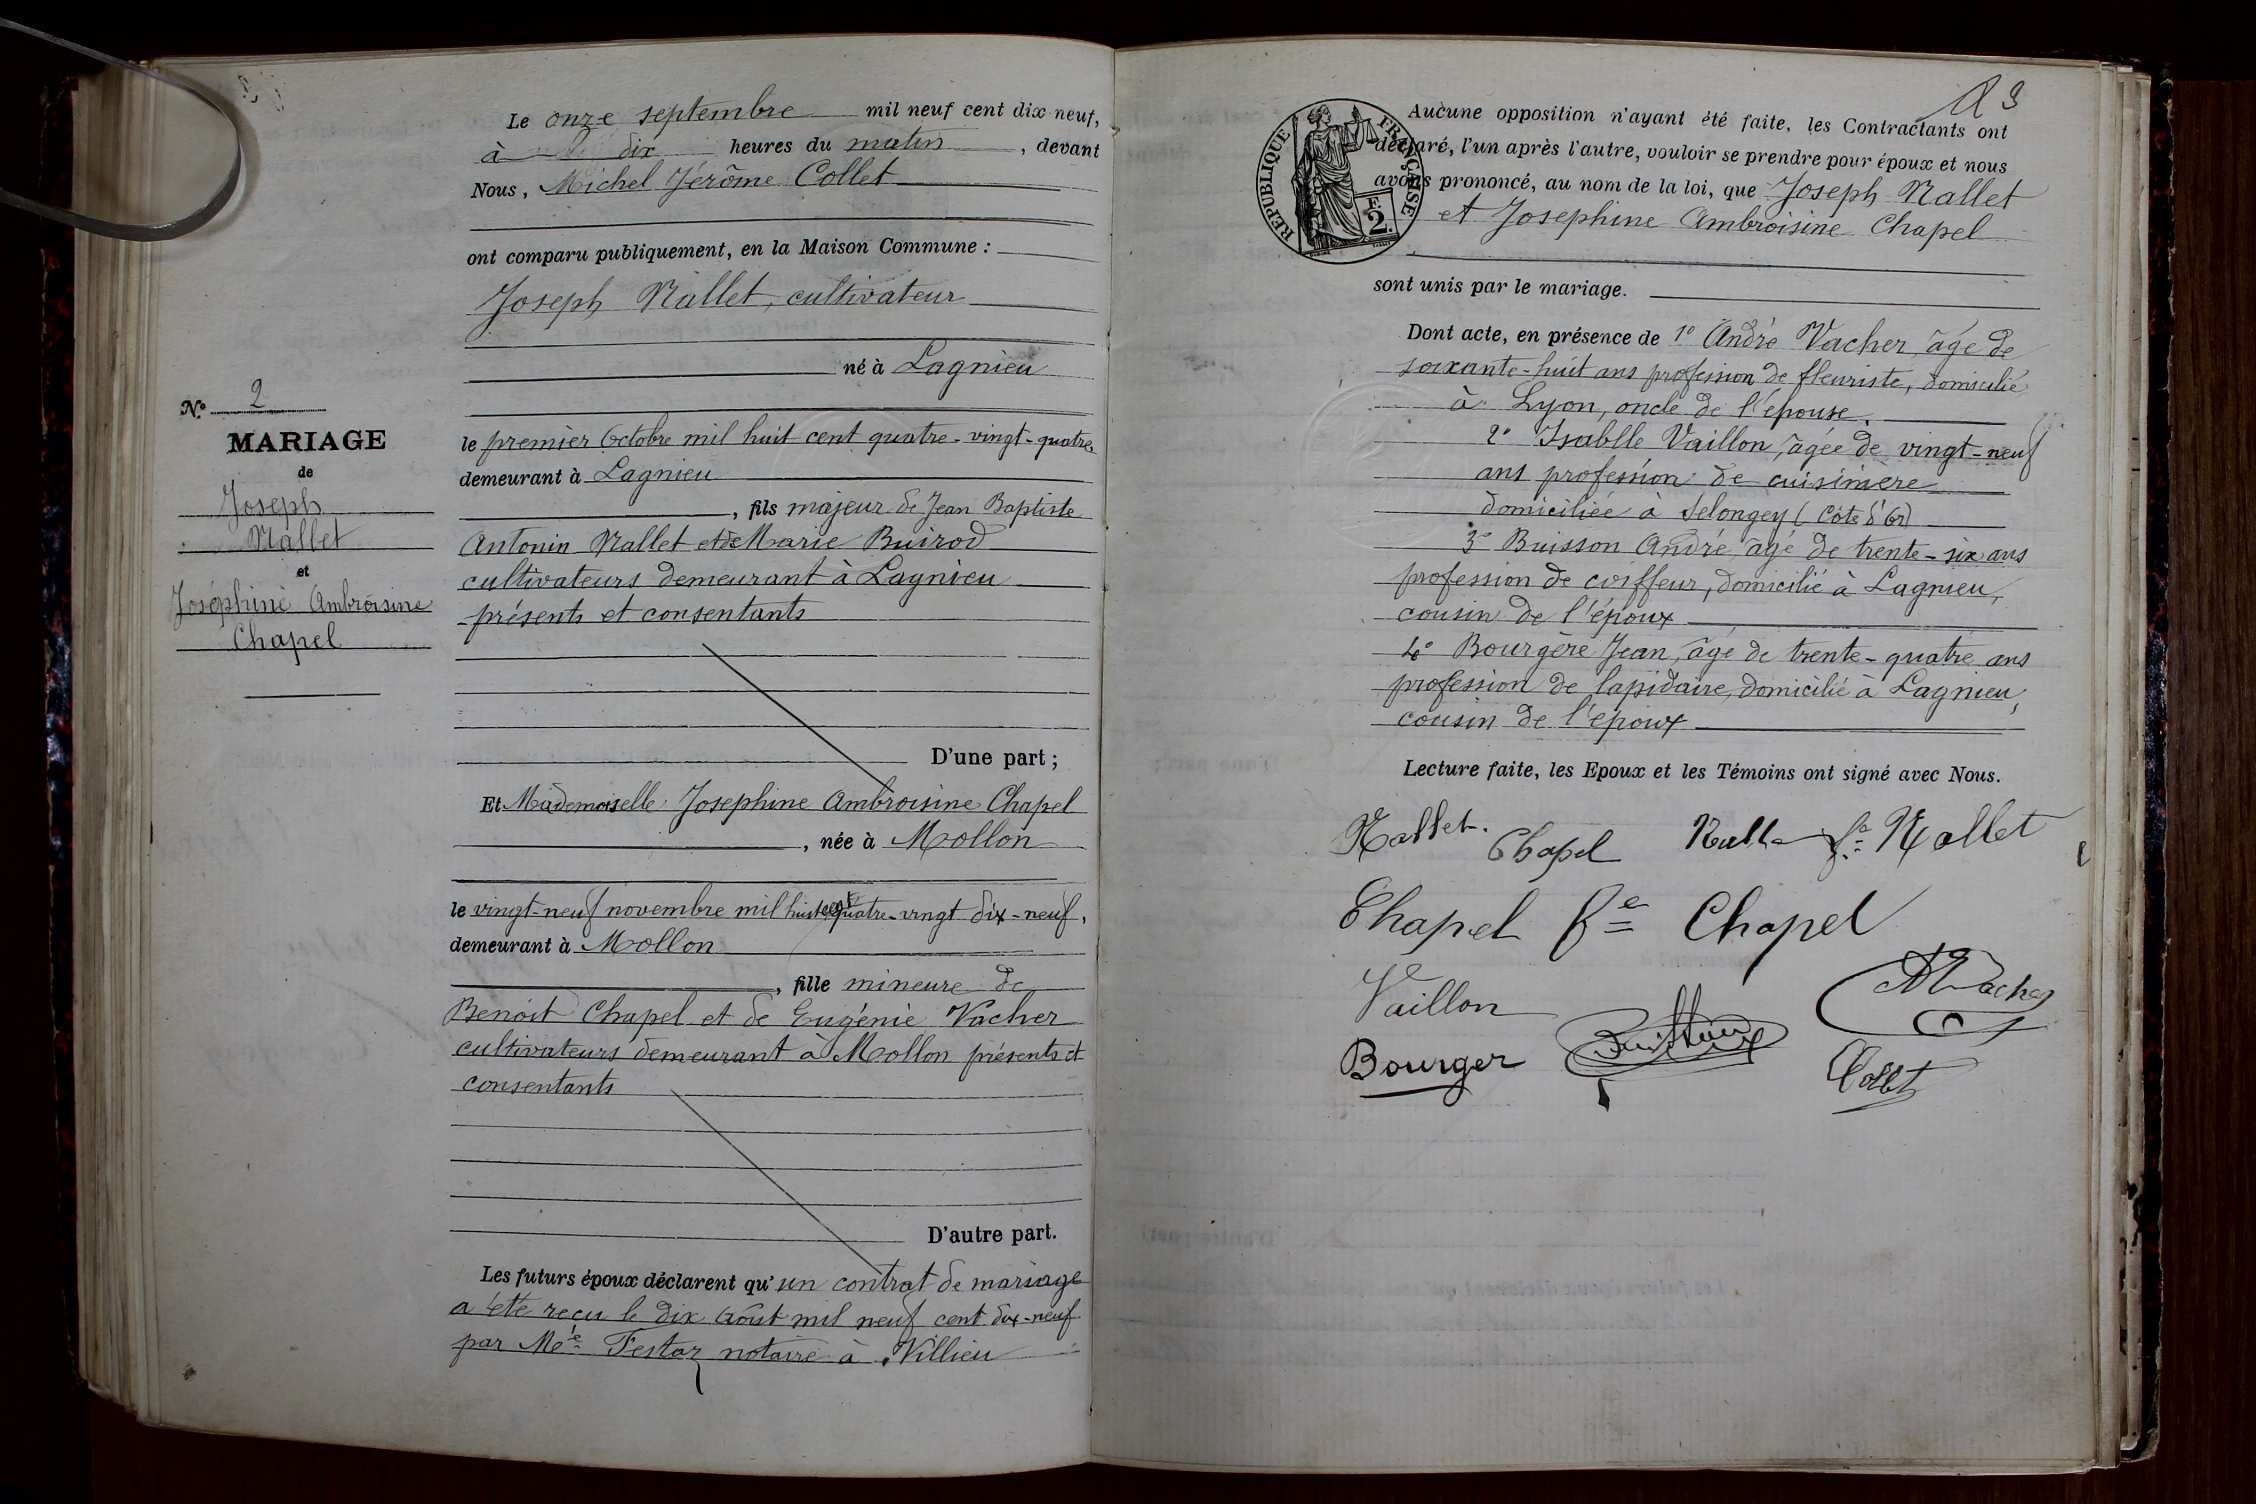 Le onze septembre mil neuf cent dix neuf,
à dix heures du matin, devant
Nous, Michel Jérôme Collet
ont comparu publiquement, en la Maison Commune :
Joseph Nallet, cultivateur
né à Lagnieu
le premier Octobre mil huit cent quatre-vingt-quatre
demeurant à Lagnieu
, fils majeur de Jean Baptiste
Antonin Nallet et de Marie Buirod
cultivateurs demeurant à Lagnieu
présents et consentants
D'une part ;
Et Mademoiselle Josephine Ambroisine Chapel
, née à Mollon
le vingt-neuf novembre mil huit cent quatre-vingt dix-neuf,
demeurant à Mollon
, fille mineure de
Benoit Chapel et de Eugénie Vacher
cultivateurs demeurant à Mollon présents et
consentants
D'autre part.
Les futurs époux déclarent qu'un contrat de mariage
a été reçu le dix Août mil neuf cent dix-neuf
par Me Festaz notaire à Villieu
N° 2
MARIAGE
de
Joseph
Nallet
et
Joséphine Ambroisine
Chapel
REPUBLIQUE FRANÇAISE
F.
2.
Aucune opposition n'ayant été faite, les Contractants ont
déclaré, l'un après l'autre, vouloir se prendre pour époux et nous
avons prononcé, au nom de la loi, que Joseph Nallet
et Josephine Ambroisine Chapel
sont unis par le mariage.
Dont acte, en présence de 1° André Vacher, âgé de
soixante-huit ans profession de fleuriste, domicilié
à Lyon, oncle de l'épouse.
2° Isablle Vaillon, âgée de vingt-neuf
ans profession de cuisinière
domiciliée à Selongey (Côte d'Or)
3° Buisson André âgé de trente-six ans
profession de coiffeur, domicilié à Lagnieu,
cousin de l'époux
4° Bourgère Jean, âgé de trente-quatre ans
profession de lapidaire, domicilié à Lagnieu,
cousin de l'époux
Lecture faite, les Epoux et les Témoins ont signé avec Nous.
Nallet. Chapel Nallet fe Nallet
Chapel fe Chapel
Vaillon A Vacher
Bourger Collet